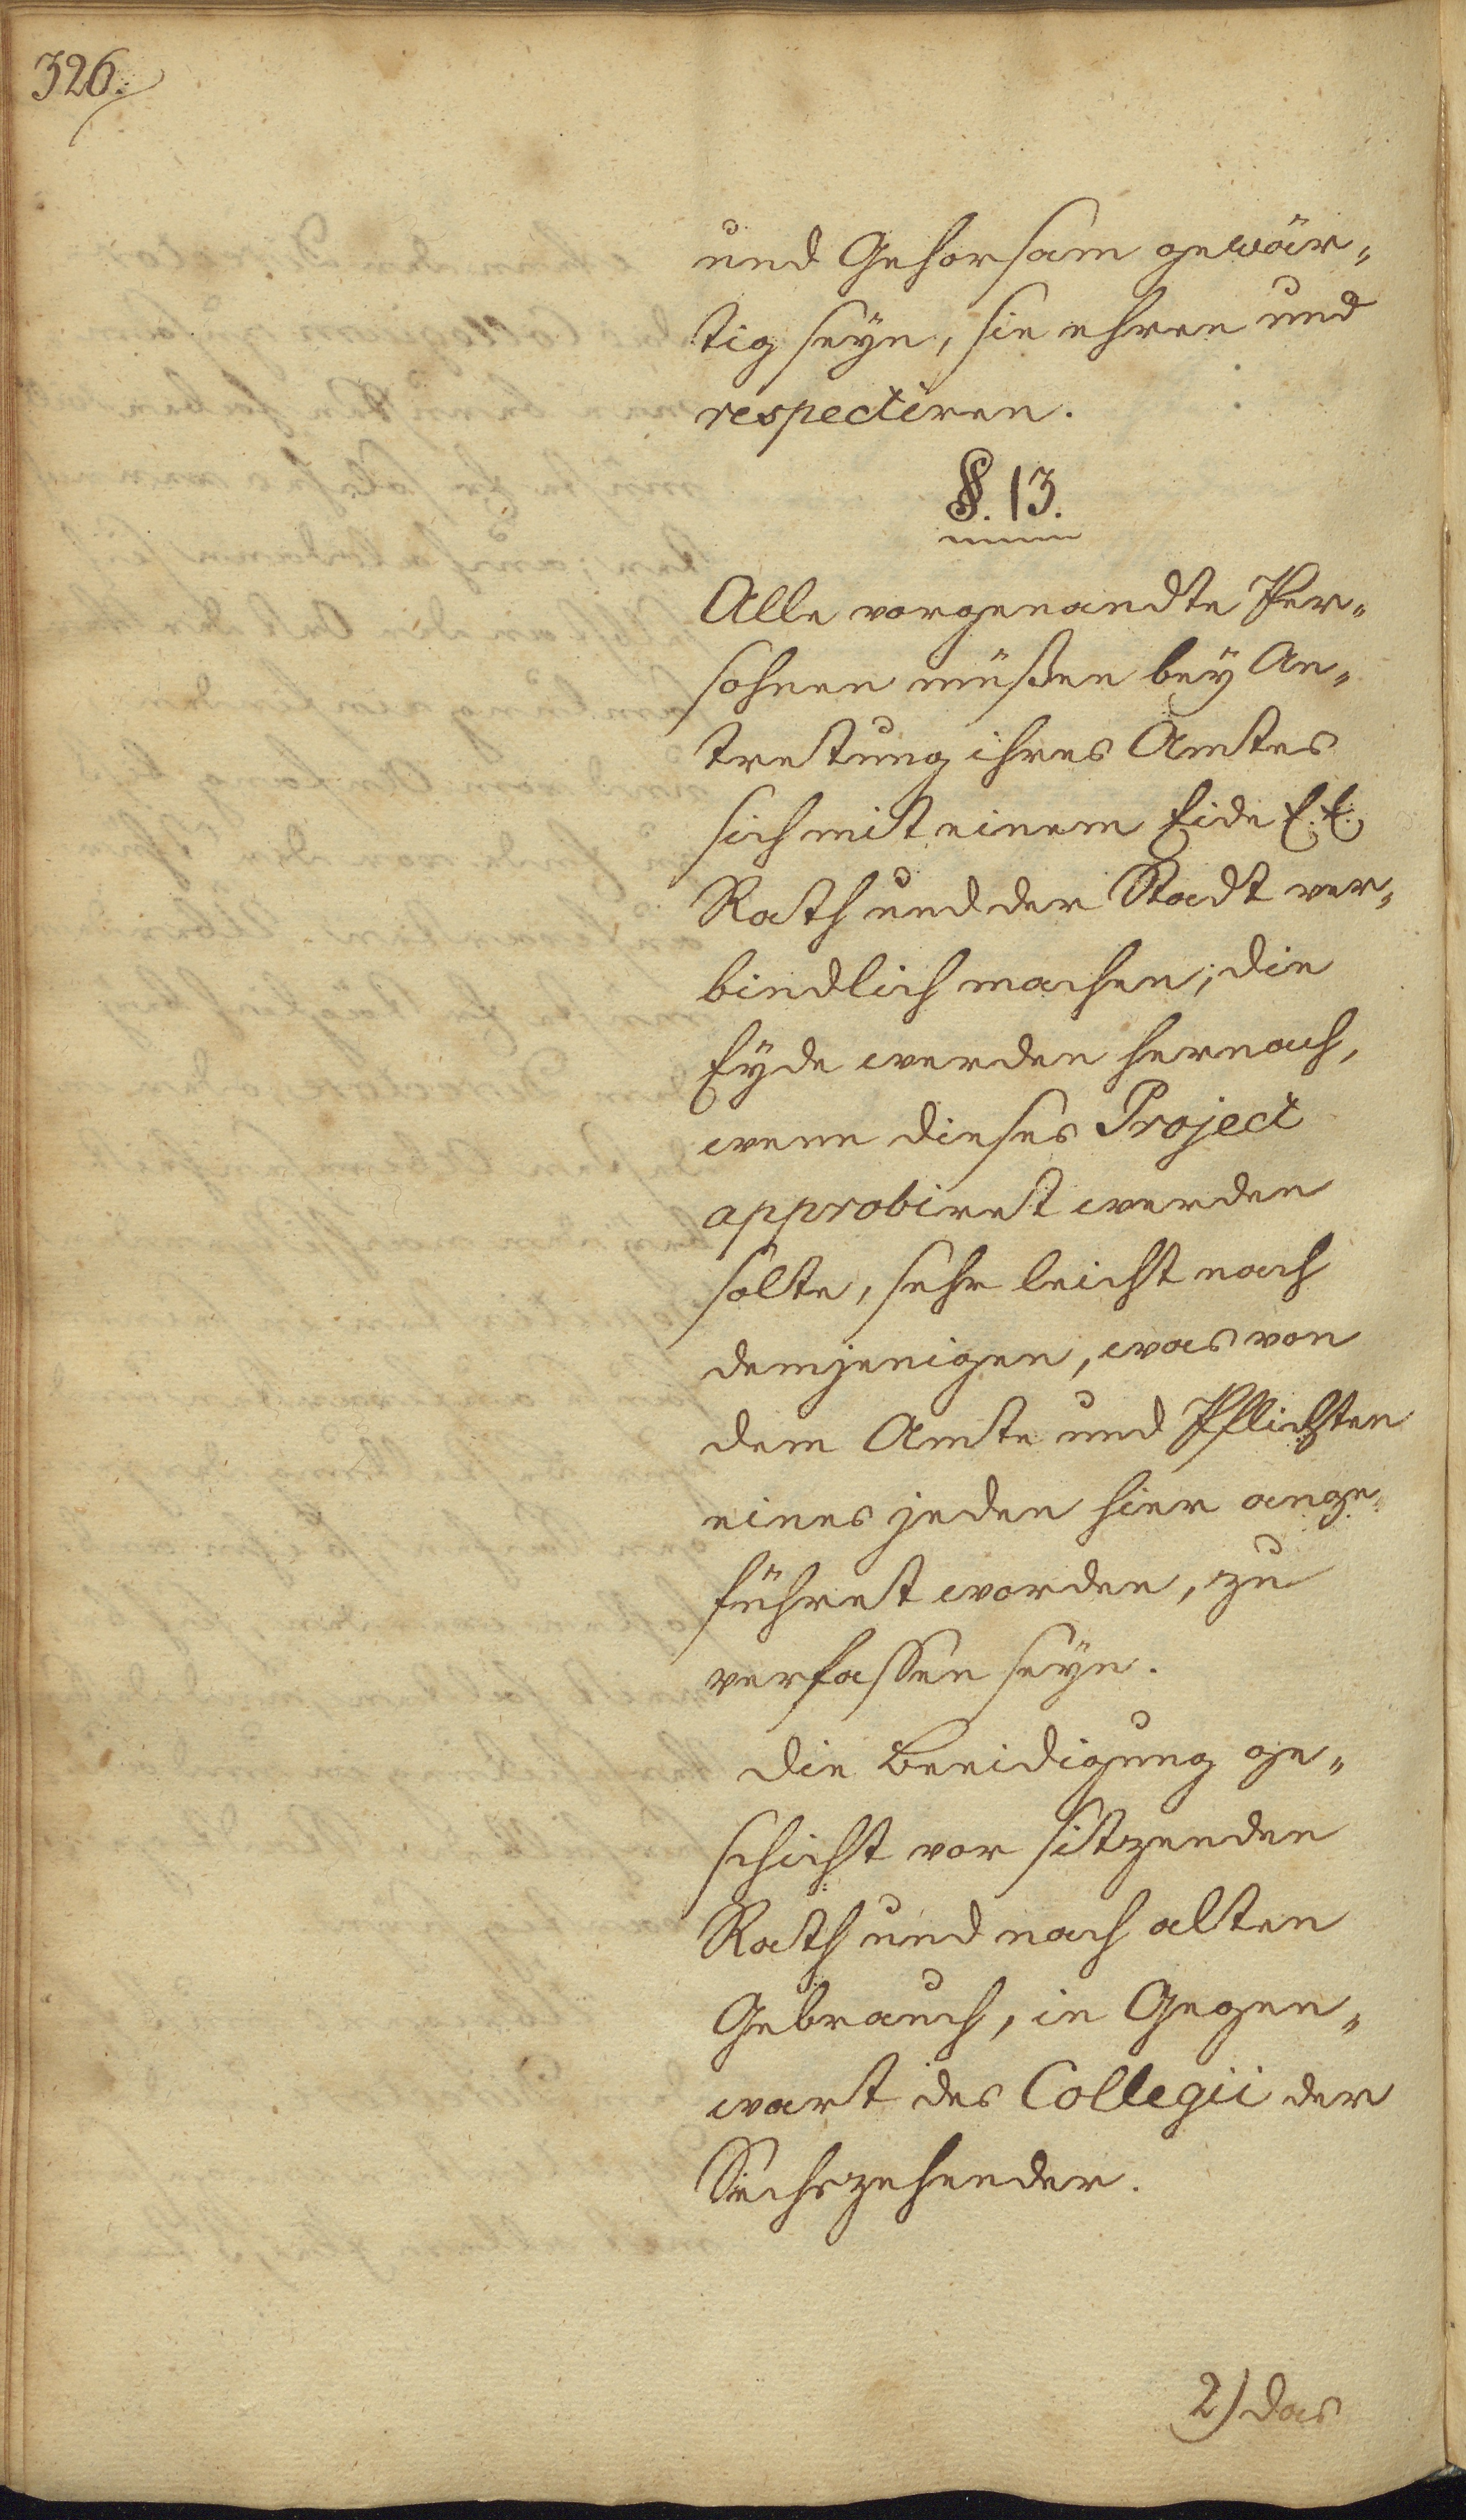 326.
und Gehorsam gewär„
tig seyn, sie ehren und
respectiren.
§. 13.
Alle vorgenandte Per„
sohnen müßen bey An„
tretung ihres Amtes
sich mit einem Eide E. E.
Rath und der Stadt ver„
bindlich machen; die
Eyde werden hernach,
wenn dieses Project
approbiret werden
solte, sehr leicht nach
demjenigen, was von
dem Amte und Pflichten
eines jeden hier ange„
führet worden, zu
verfassen seyn.
Die Beeidigung ge„
schicht vor sitzenden
Rath und nach alten
Gebrauch, in Gegen„
wart des Collegii der
Sechszehender.
2) das